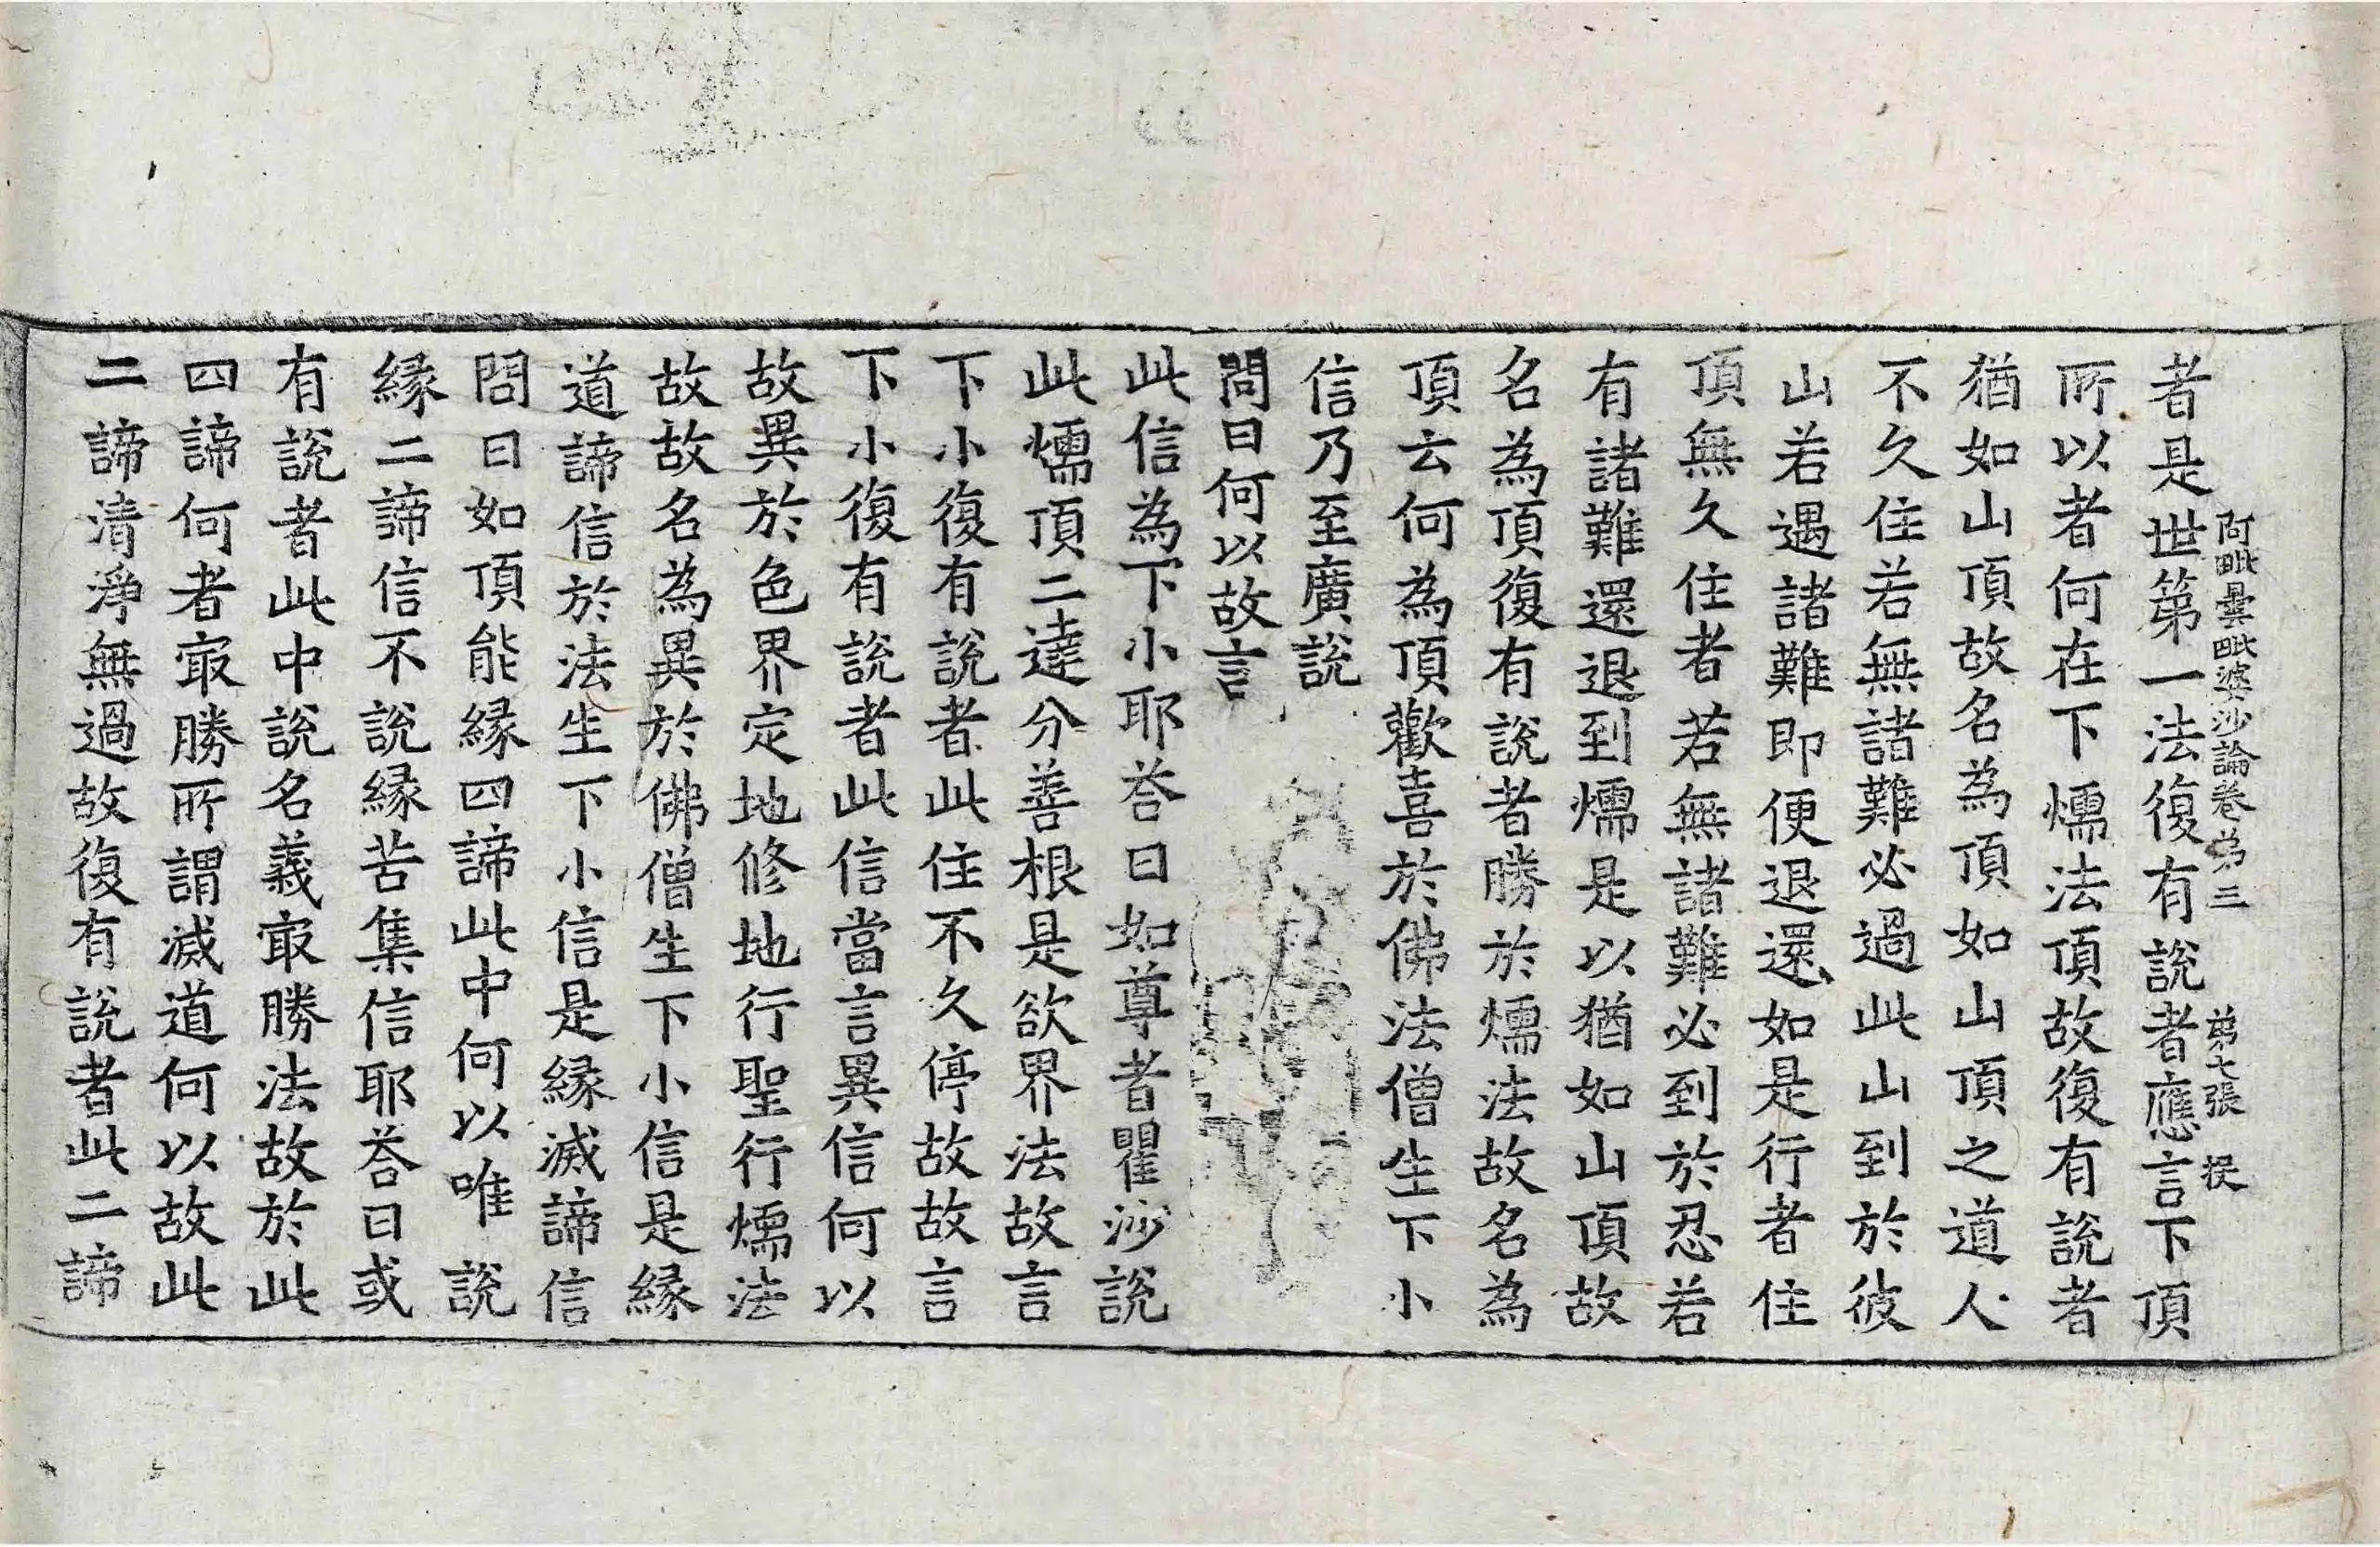 阿毗曇毗婆沙論卷第三　第七張　捉
者是世第一法復有說者應言下頂
所以者何在下煗法頂故復有說者
猶如山頂故名為頂如山頂之道人
不久住若無諸難必過此山到於彼
山若遇諸難即便退還如是行者住
頂無久住者若無諸難必到於忍若
有諸難還退到煗是以猶如山頂故
名為頂復有說者勝於煗法故名為
頂云何為頂歡喜於佛法僧生下小
信乃至廣說
問曰何以故言
此信為下小耶荅曰如尊者瞿沙說
此煗頂二達分善根是欲界法故言
下小復有說者此住不久停故故言
下小復有說者此信當言異信何以
故異於色界定地修地行聖行煗法
故故名為異於佛僧生下小信是緣
道諦信於法生下小信是緣滅諦信
問曰如頂能緣四諦此中何以唯說
緣二諦信不說緣苦集信耶荅曰或
有說者此中說名義㝡勝法故於此
四諦何者㝡勝所謂滅道何以故此
二諦清淨無過故復有說者此二諦